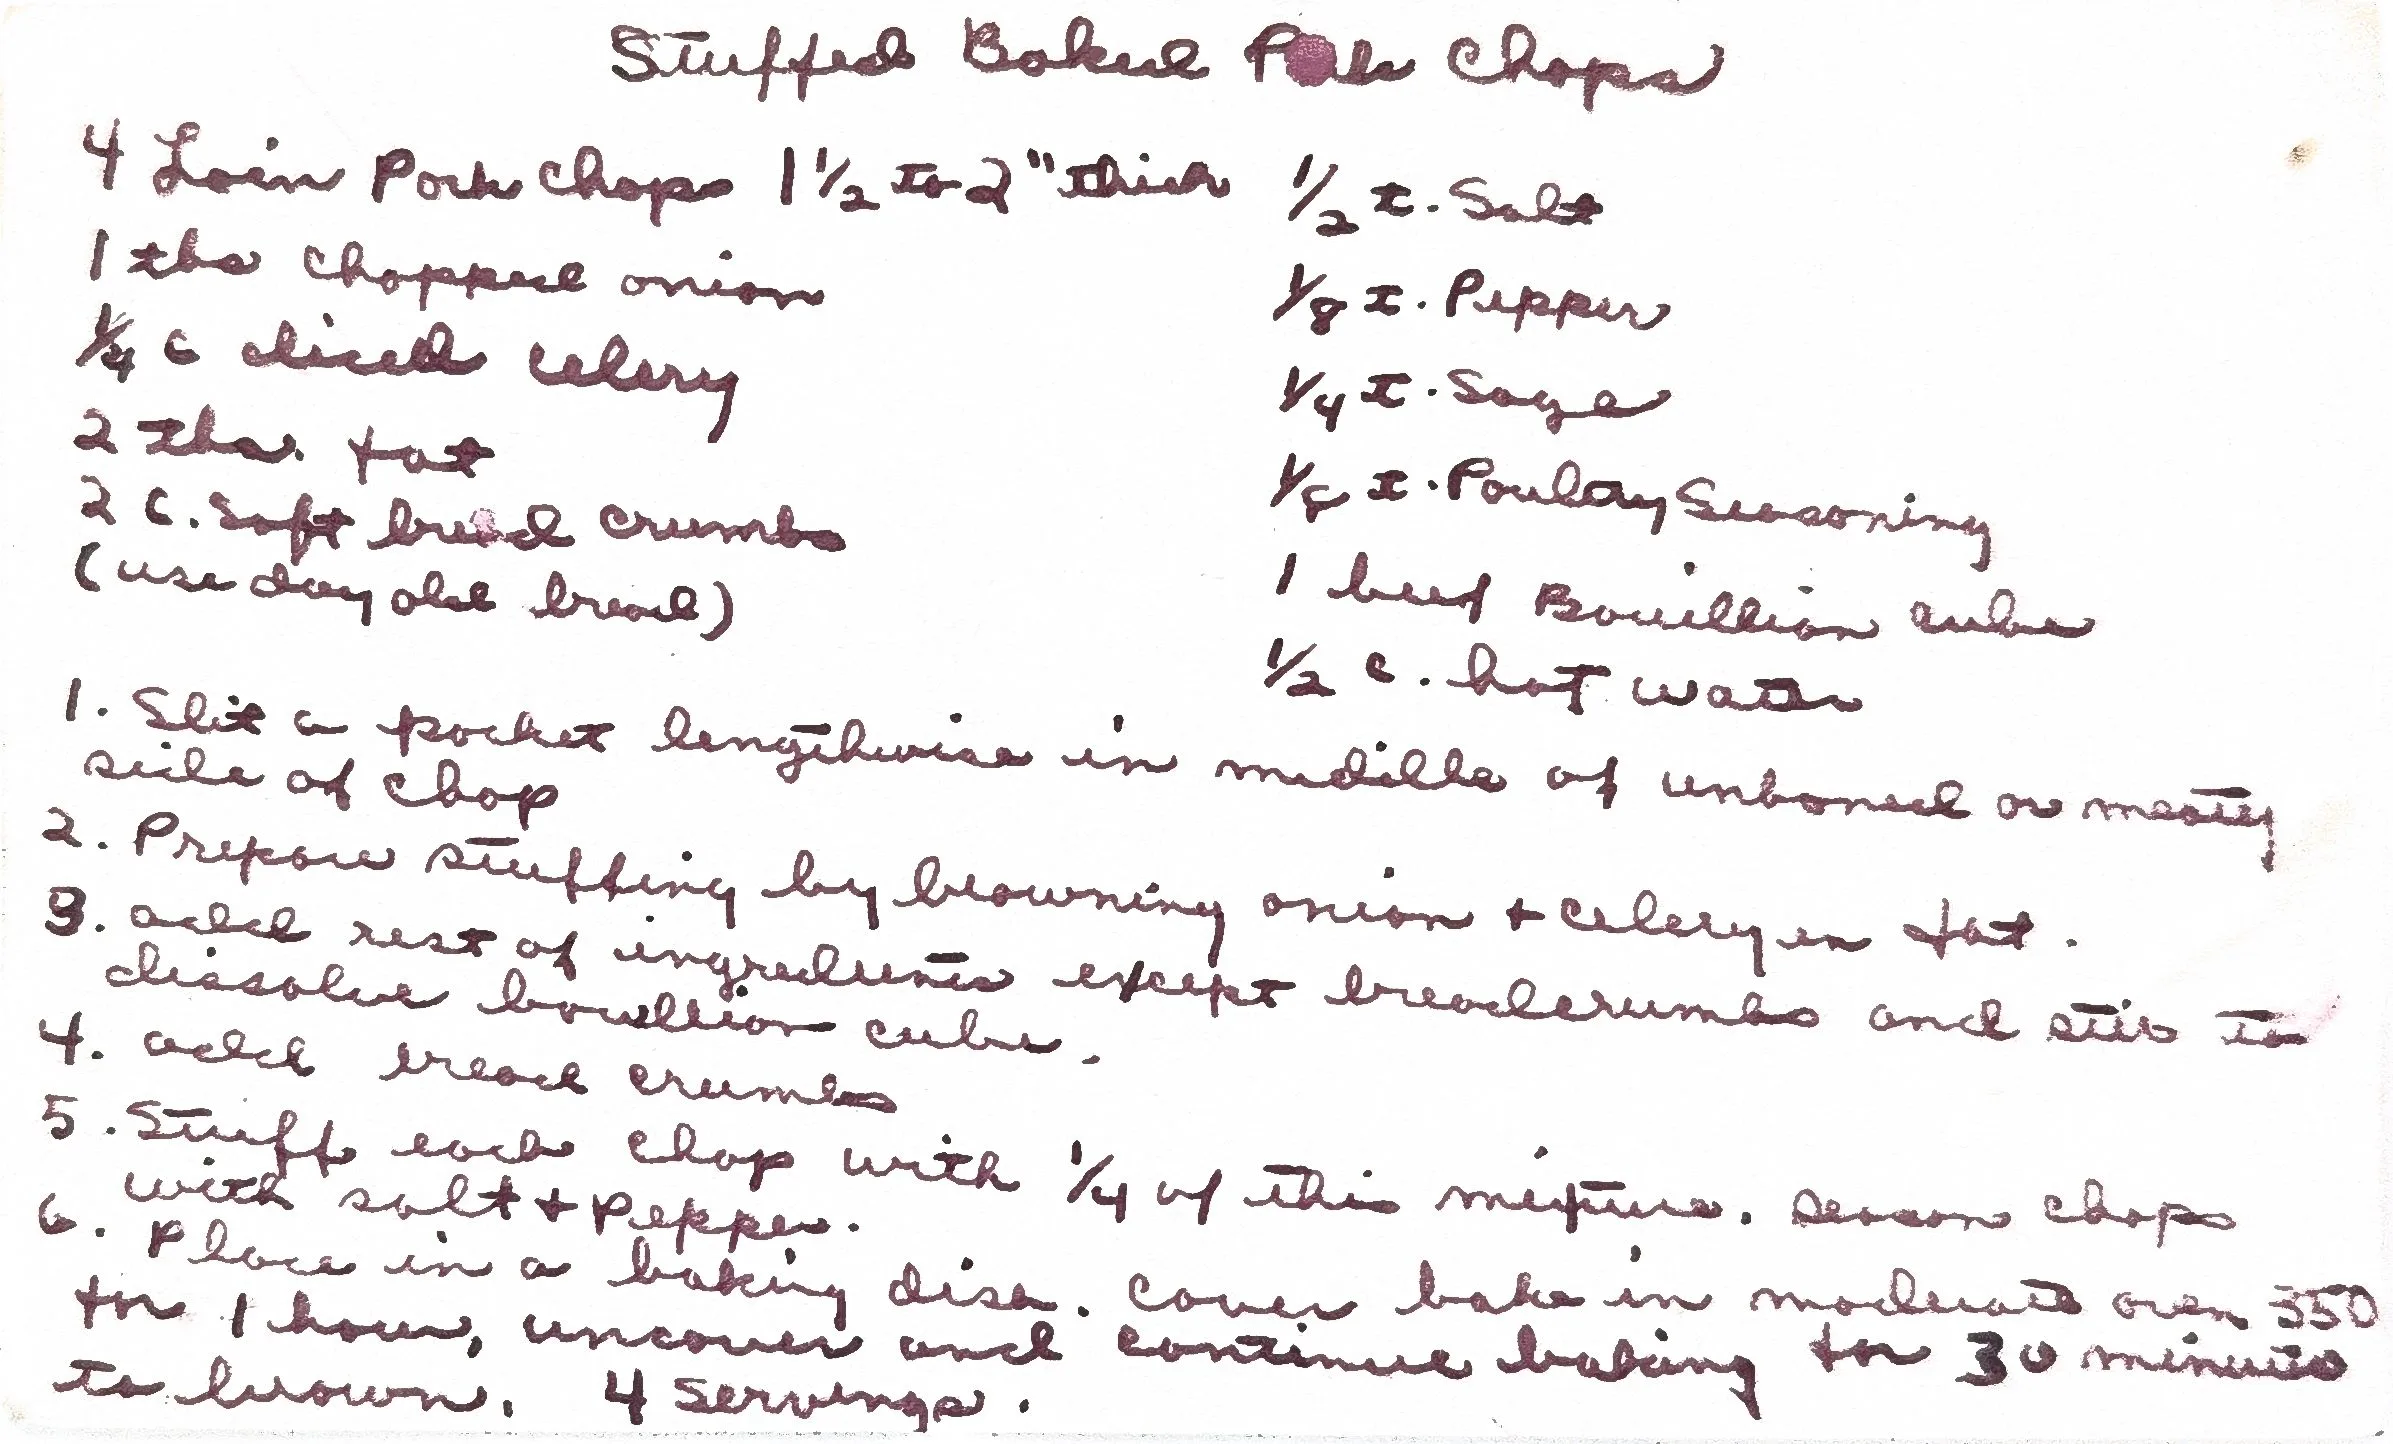 Stuffed Baked Pork Chops
4 Loin Pork Chops 1 1/2 to 2" thick
1 tbs chopped onion
1/4 c diced celery
2 tbs. fat
2 C. Soft bread crumbs
(use day old bread)
1/2 t. Salt
1/8 t. Pepper
1/4 t. Sage
1/8 t. Poultry Seasoning
1 beef Bouillion cube
1/2 c. hot water
1. Slit a pocket lengthwise in middle of unboned or meaty
side of chop
2. Prepare stuffing by browning onion + celery in fat.
3. add rest of ingredients except breadcrumbs and stir to
dissolve bouillion cube.
4. add bread crumbs
5. Stuff each chop with 1/4 of this mixture. season chops
with salt + Pepper.
6. Place in a baking dish. Cover bake in moderate oven 350
for 1 hour, uncover and continue baking for 30 minutes
to brown. 4 Servings.